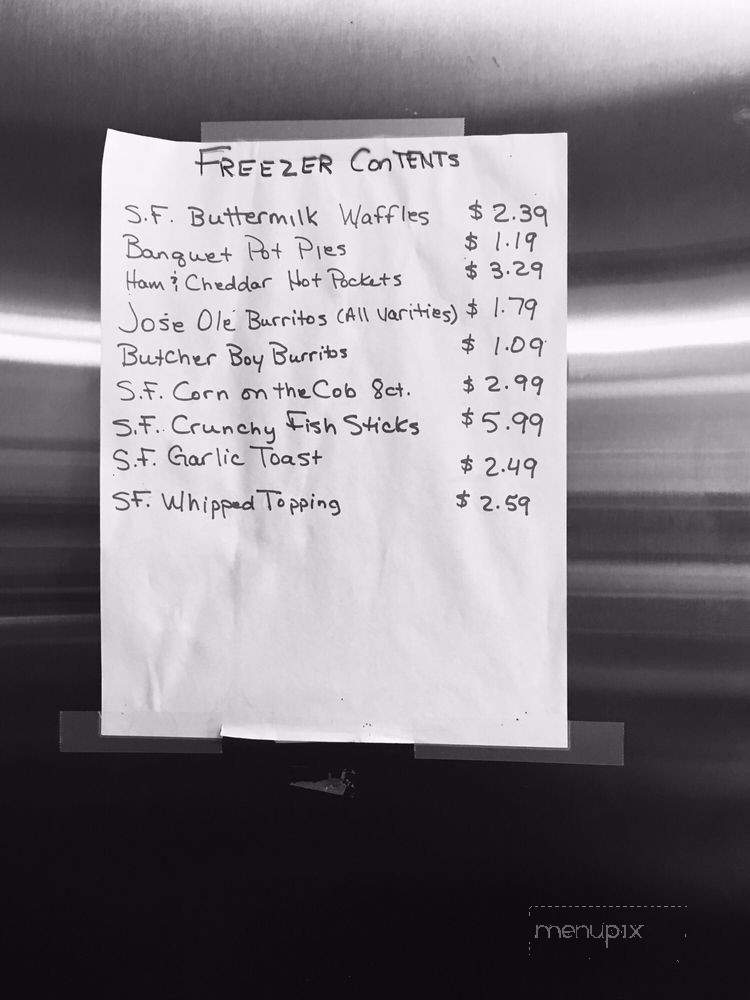 FREEZER ConTENTS
S.F. Buttermilk Waffles $2.39
Banquet Pot Pies $ 1.19
Ham & Cheddar Hot Pockets $ 3.29
Jose Olé Burritos (All Varities) $ 1.79
Butcher Boy Burritos $ 1.09
S.F. Corn on the Cob 8ct. $2.99
S.F. Crunchy Fish Sticks $5.99
S.F. Garlic Toast $ 2.49
SF. Whipped Topping $ 2.59
menupix